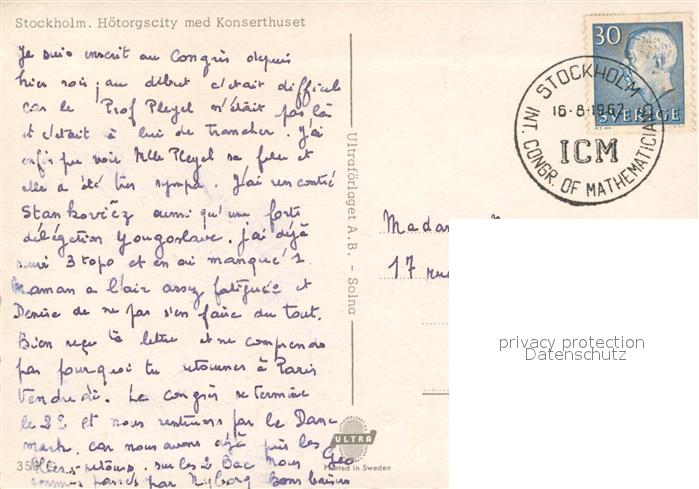 Stockholm. Hötorgscity med Konserthuset
Je suis inscrit au Congrès depuis
hier soir, au début c'était difficile
car le Prof Pleyel n'était pas là
et c'était à lui de trancher. J'ai
enfin pu voir Mlle Pleyel sa fille et
elle a été très sympa. J'ai rencontré
Stankovičz ainsi qu'une forte
délégation Yougoslave. J'ai déjà
suivi 3 topo et en ai manqué 1
Maman a l'air assez fatiguée et
Denise de ne pas s'en faire du tout.
Bien reçu ta lettre et ne comprends
pas pourquoi tu retournes à Paris
Vendredi. Le congrès se termine
le 22 et nous rentrons par le Dane
mark, car nous avons déjà pris les
Allers-retours sur les 2 Bac Nous
sommes passés par Nyborg Bons baisers
Geo
Ultraförlaget A.B. - Solna
30
SVERIGE
STOCKHOLM
16·8·1962
ICM
INT. CONGR. OF MATHEMATICIANS
Madame
17 rue
privacy protection
Datenschutz
ULTRA
Printed in Sweden